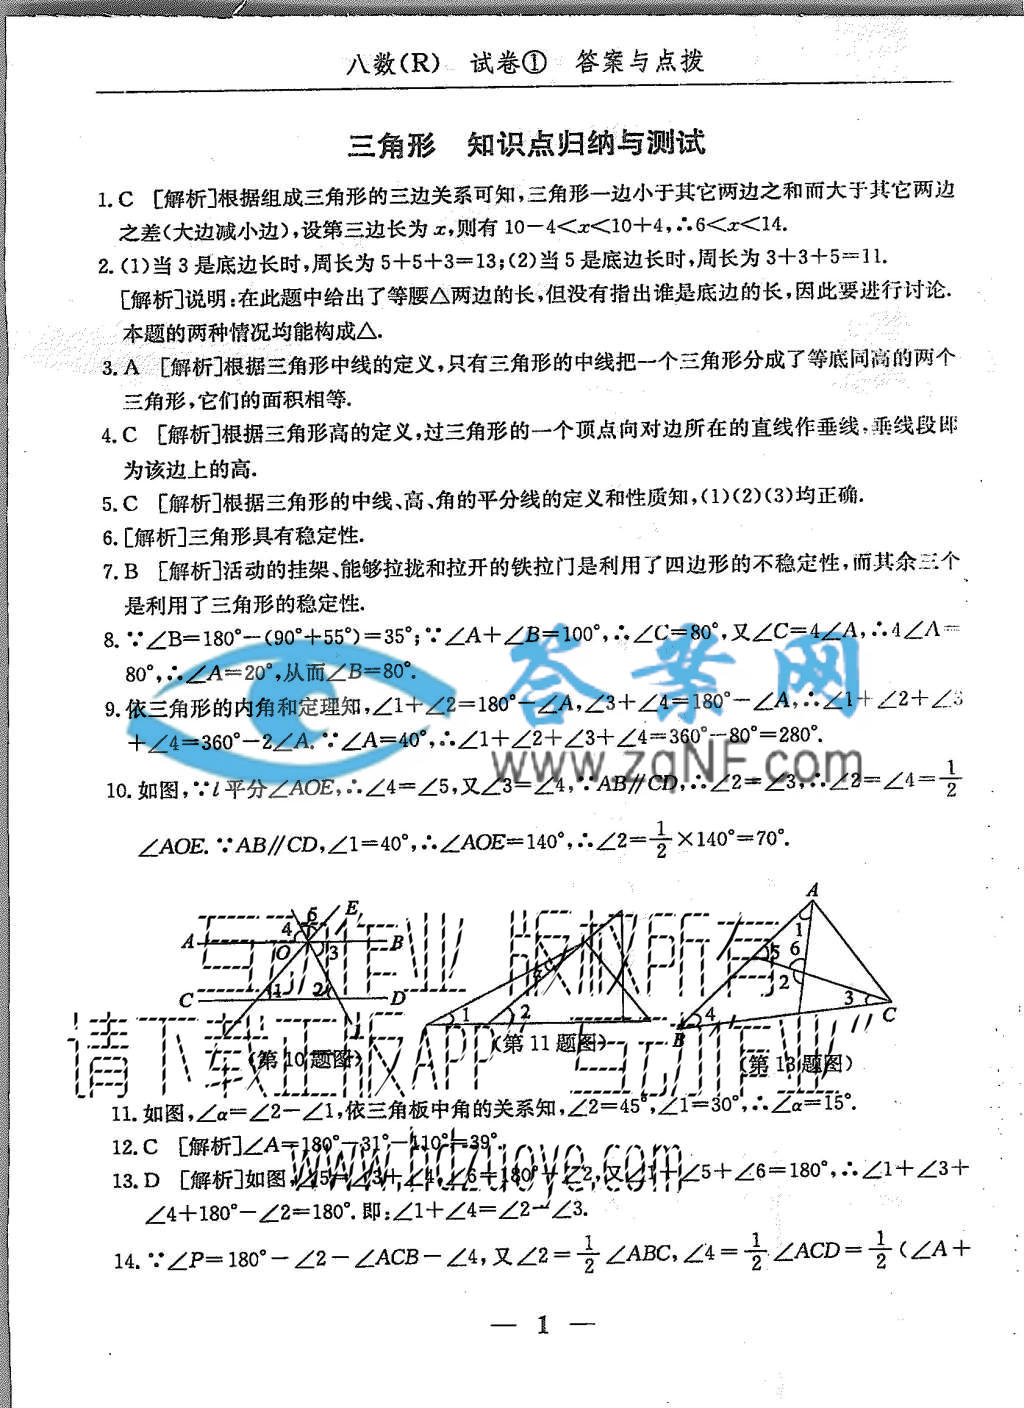 八数(R) 试卷① 答案与点拨
三角形 知识点归纳与测试
1. C [解析]根据组成三角形的三边关系可知,三角形一边小于其它两边之和而大于其它两边
之差(大边减小边),设第三边长为x,则有10-4<x<10+4,∴6<x<14.
2. (1)当3是底边长时,周长为5+5+3=13;(2)当5是底边长时,周长为3+3+5=11.
[解析]说明:在此题中给出了等腰△两边的长,但没有指出谁是底边的长,因此要进行讨论.
本题的两种情况均能构成△.
3. A [解析]根据三角形中线的定义,只有三角形的中线把一个三角形分成了等底同高的两个
三角形,它们的面积相等.
4. C [解析]根据三角形高的定义,过三角形的一个顶点向对边所在的直线作垂线,垂线段即
为该边上的高.
5. C [解析]根据三角形的中线、高、角的平分线的定义和性质知,(1)(2)(3)均正确.
6. [解析]三角形具有稳定性.
7. B [解析]活动的挂架、能够拉拢和拉开的铁拉门是利用了四边形的不稳定性,而其余三个
是利用了三角形的稳定性.
8. ∵∠B=180°-(90°+55°)=35°;∵∠A+∠B=100°,∴∠C=80°,又∠C=4∠A,∴4∠A=
80°,∴∠A=20°,从而∠B=80°.
9. 依三角形的内角和定理知,∠1+∠2=180°-∠A,∠3+∠4=180°-∠A,∴∠1+∠2+∠3
+∠4=360°-2∠A.∵∠A=40°,∴∠1+∠2+∠3+∠4=360°-80°=280°.
答案网
www.zqNF.com
10. 如图,∵l平分∠AOE,∴∠4=∠5,又∠3=∠4,∵AB∥CD,∴∠2=∠3,∴∠2=∠4=1/2
∠AOE.∵AB∥CD,∠1=40°,∴∠AOE=140°,∴∠2=1/2×140°=70°.
A B C D E O 1 2 3 4 5 l
(第10题图)
1 2
(第11题图)
A B C 1 2 3 4 5 6
(第13题图)
请下载正版APP
11. 如图,∠α=∠2-∠1,依三角板中角的关系知,∠2=45°,∠1=30°,∴∠α=15°.
12. C [解析]∠A=180°-31°-110°=39°.
13. D [解析]如图,∠5=∠3+∠4,∠6=180°-∠2,又∠1+∠5+∠6=180°,∴∠1+∠3+
∠4+180°-∠2=180°.即:∠1+∠4=∠2-∠3.
14. ∵∠P=180°-∠2-∠ACB-∠4,又∠2=1/2∠ABC,∠4=1/2∠ACD=1/2(∠A+
— 1 —